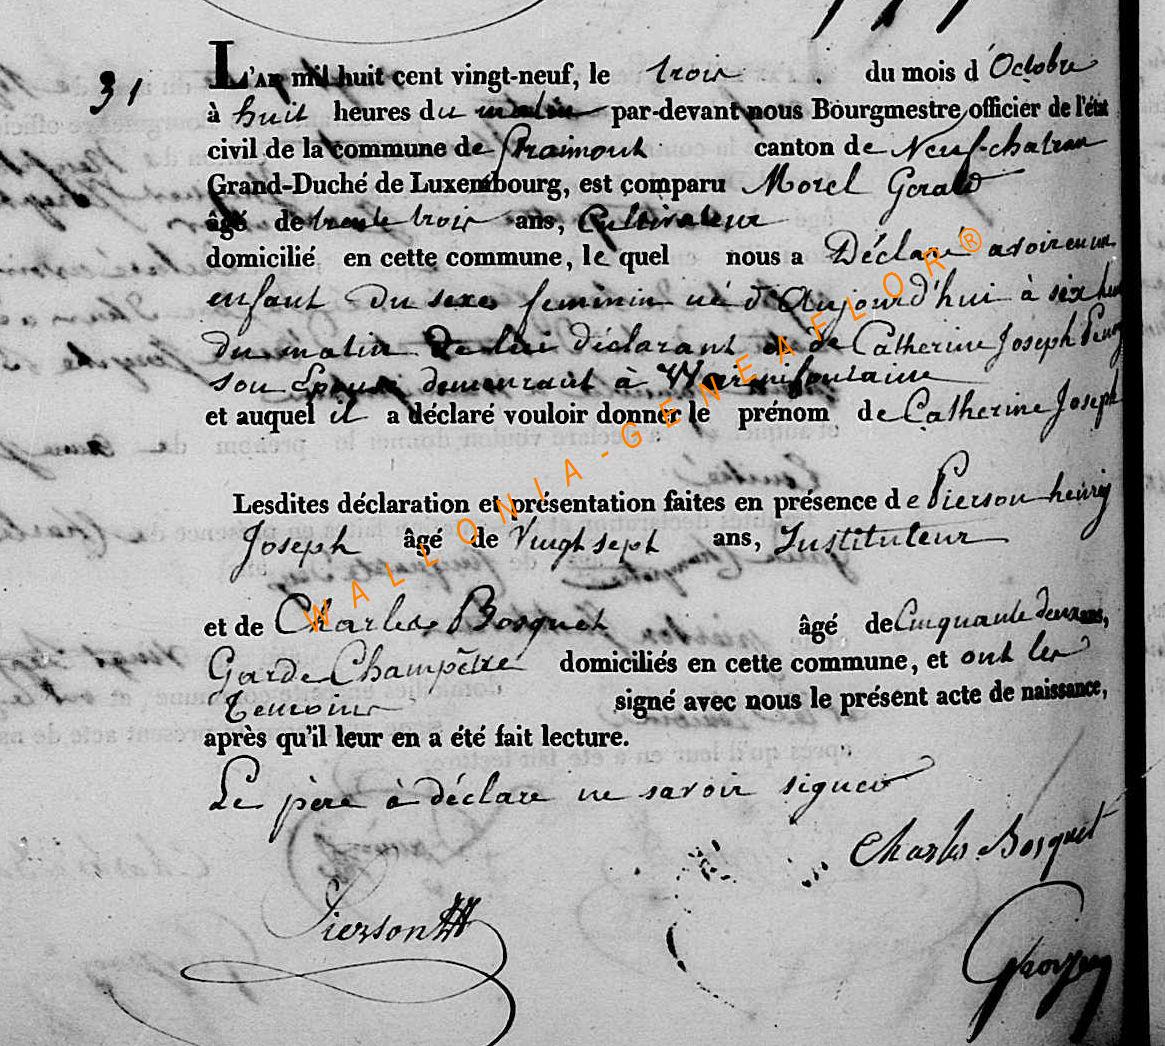 31
L'AN mil huit cent vingt-neuf, le trois du mois d'Octobre
à huit heures du matin par-devant nous Bourgmestre, officier de l'état
civil de la commune de Straimont canton de Neufchateau
Grand-Duché de Luxembourg, est comparu Morel Gerard
âgé de trente trois ans, Cultivateur
domicilié en cette commune, le quel nous a Déclaré avoir eu un
enfant du sexe feminin né d'Aujourd'hui à six heu
du matin de lui déclarant et de Catherine Joseph
son Epouse demeurant à Warmifontaine
et auquel il a déclaré vouloir donner le prénom de Catherine Joseph
Lesdites déclaration et présentation faites en présence de Pierson henry
Joseph âgé de Vingt sept ans, Instituteur
et de Charles Bosquet âgé de Cinquante deux ans,
Garde Champêtre domiciliés en cette commune, et ont les
Temoins signé avec nous le présent acte de naissance,
après qu'il leur en a été fait lecture.
Le père à déclare ne savoir signer
Charles Bosquet
Pierson
WALLONIA-GENEAFLOR®